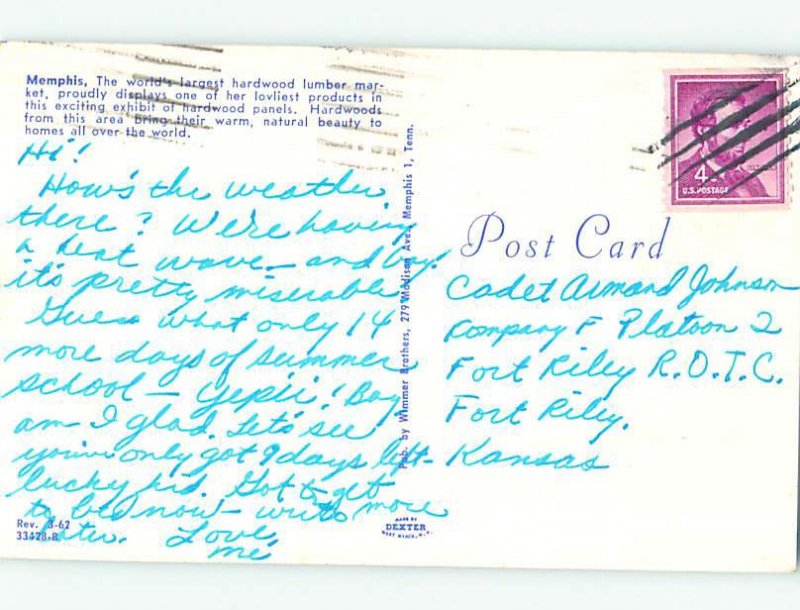 Memphis, The world's largest hardwood lumber mar-
ket, proudly displays one of her lovliest products in
this exciting exhibit of hardwood panels. Hardwoods
from this area bring their warm, natural beauty to
homes all over the world.
Hi!
How's the weather
there? We're having
a heat wave – and boy!
it's pretty miserable
Guess what only 14
more days of summer
school – Yepii! Boy
am I glad. Let's see
you've only got 9 days left –
lucky kid. Got to get
to bed now – write more
later. Love,
me
Rev. 3-62
33428-B
Pub. by Wimmer Brothers, 279 Madison Ave., Memphis 1, Tenn.
MADE BY
DEXTER
WEST NYACK, N.Y.
4¢
U.S. POSTAGE
Post Card
Cadet Armand Johnson
Company F Platoon 2
Fort Riley R.O.T.C.
Fort Riley,
Kansas